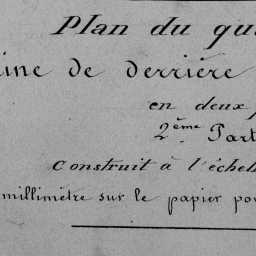 Plan du qu
ine de derrière
en deux
2ème Part
Construit à l'échel
millimètre sur le papier po